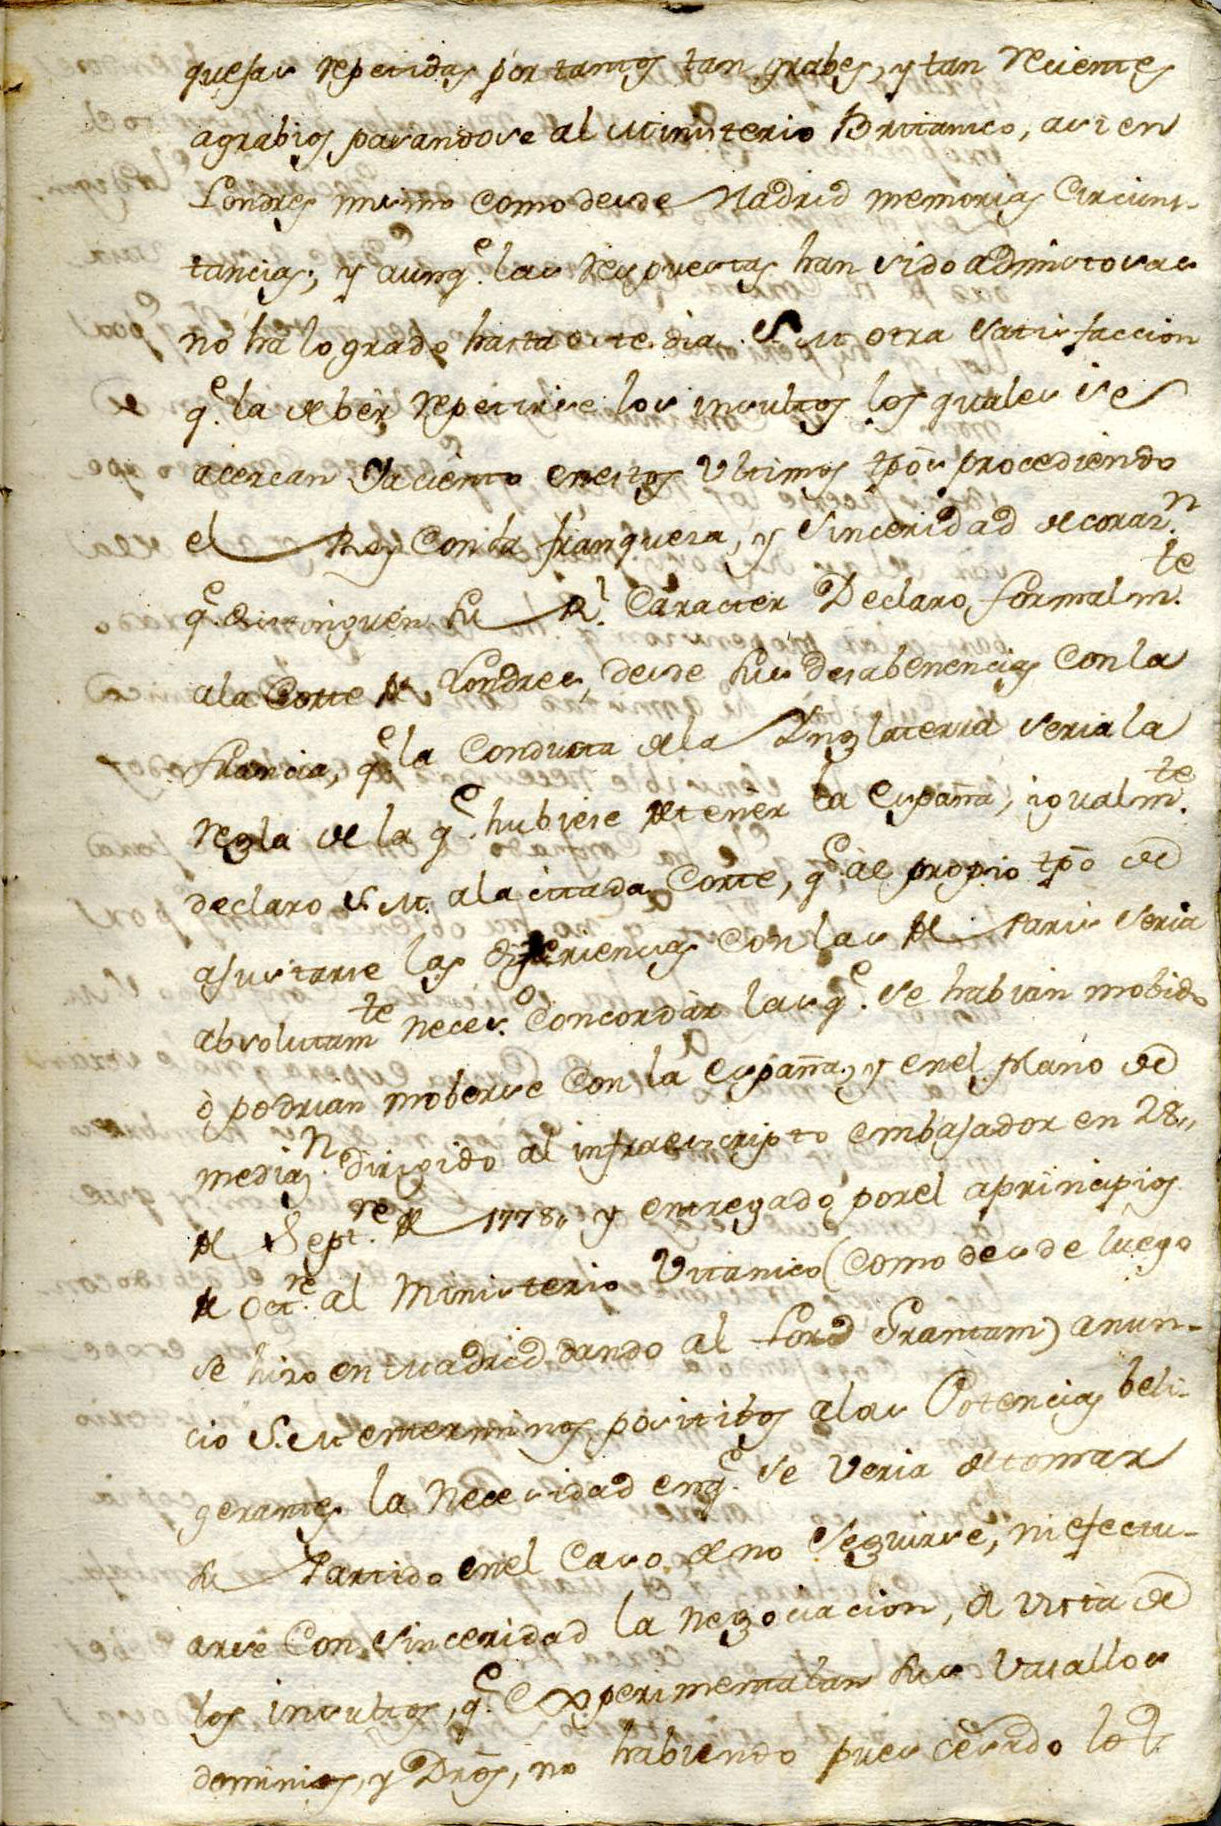 quejas repetidas por tantos tan grabes, y tan recientes
agrabios pasandose al Ministerio Britanico, asi en
Londres mismo como desde Madrid memorias Circuns-
tancias; y aunq.e las respuestas han sido admistosas
no há logrado hasta este dia S. M. otra satisfaccion
q.e la de ber repetirse los insultos los quales se
acercan á ciento enestos Ultimos tpōs procediendo
el Rey Conla franqueza, y Sinceridad de coraz.n
q.e distinguen su R.l Caracter Declaro formalm.te
ala Corte de Londres, desde sus desabenencias Conla
Francia, q.e la Conducta dela Inglaterra seria la
regla de la q.e hubiese detener la españa, igualm.te
declaro S. M. ala citada Corte, q.e al propio tpō de
ajustarse las diferiencias Con las de Paris seria
absolutam.te neces.o Concordar las q.e se habian mobido
ò podrian moberse Con la españa, y enel Plano de
mediaz.n dirigido al infraescripto embajador en 28,,
de Sept.re de 1778,, y entregado porel aprincipios
de Oct.re al Ministerio Vritanico (Como desde luego
se hizo en Madrid dando al Lord Grantam) anun-
cio S. M. enterminos positibos alas Potencias beli-
gerantes la Necesidad enq.e se veria detomar
su Partido enel Caso de no seguirse, ni efectu-
arse Con Sinceridad la Negociacion, á vista de
los insultos, q.e Experimentaban sus Vasallos
dominios, y Drōs, no habiendo pues cesado los